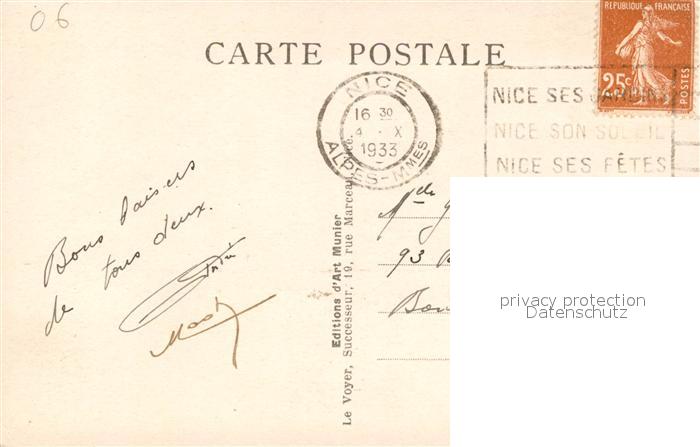 06
CARTE POSTALE
REPUBLIQUE FRANÇAISE
25c
POSTES
NICE
16 30
4 · X
1933
ALPES-MMES
NICE SES JARDINS
NICE SON SOLEIL
NICE SES FÊTES
Bons baisers
de tous deux.
Editions d'Art Munier
Le Voyer, Successeur, 19, rue Marceau,
Mde
93
privacy protection
Datenschutz